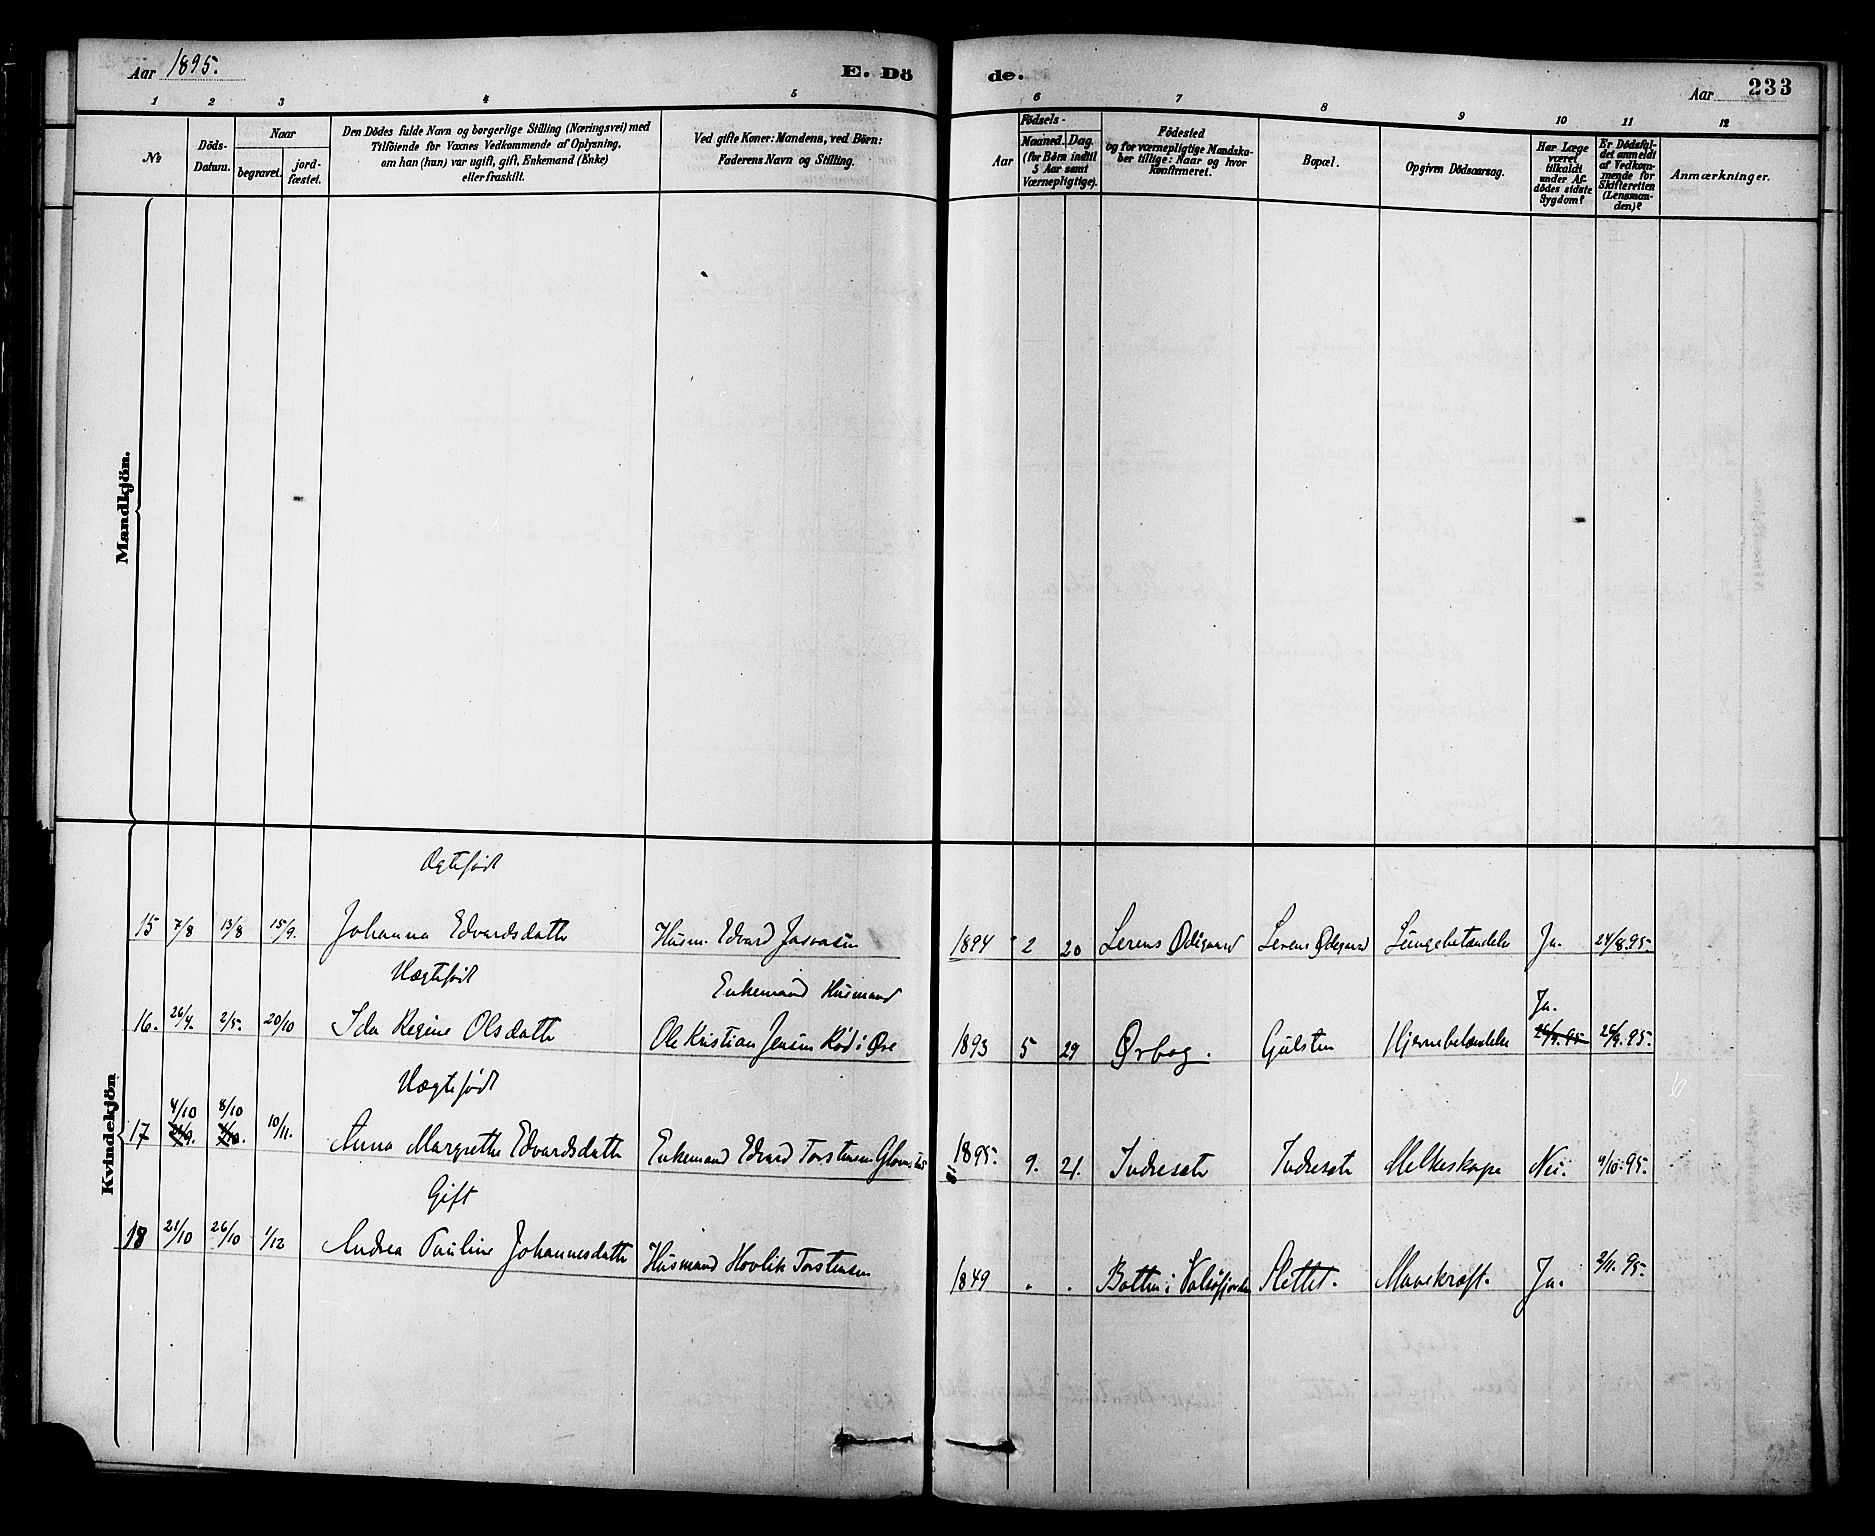 Aar 1895.
E. Dö
de.
Aar
233
1 2 3 4 5 6 7 8 9 10 11 12
№
Döds-
Datum.
Naar
begravet.
jord-
fæstet.
Den Dödes fulde Navn og borgerlige Stilling (Næringsvei) med
Tilföiende for Voxnes Vedkommende af Oplysning,
om han (hun) var ugift, gift, Enkemand (Enke)
eller fraskilt.
Ved gifte Koner: Mandens, ved Börn:
Faderens Navn og Stilling.
Aar
Födsels-
Maaned. Dag.
(for Börn indtil
5 Aar samt
Værnepligtige).
Födested
og for værnepligtige Mandska-
ber tillige: Naar og hvor
konfirmeret.
Bopæl.
Opgiven Dödsaarsag.
Har Læge
været
tilkaldt
under Af-
dödes sidste
Sygdom?
Er Dödsfal-
det anmeldt
af Vedkom-
mende for
Skifteretten
(Lensman-
den)?
Anmærkninger.
Mandkjön.
Kvindekjön
Ægtefødt
15 7/8 13/8 15/9. Johanna Edvardsdatter Husm. Edvard 1894 2 20 Lerens Ødegaard Lerens Ødegaard Lungebetændelse Ja. 24/8.95.
Uægtefødt Enkemand Husmand
Ja.
16. 26/4. 2/5. 20/10 Ida Regine Olsdatter Ole Kristian Jensen Rød i Øre 1893 5 29 Ørbog. Gulsten Hjernebetændelse 26/9.95. 26/9.95.
Uægtefødt
4/10 8/10
17 21/9. 10/11. Anna Margrethe Edvardsdatter Enkemand Edvard Torstensen 1895. 9. 21. Indresæte Indresæte Melkeskorpe Nei. 9/10.95.
Gift
18 21/10 26/10 1/12 Andrea Pauline Johannesdatter Husmand Hovlik Torstensen 1849 . . Botten i Valsøfjorden Slettet. Mavekræft. Ja. 2/11.95.